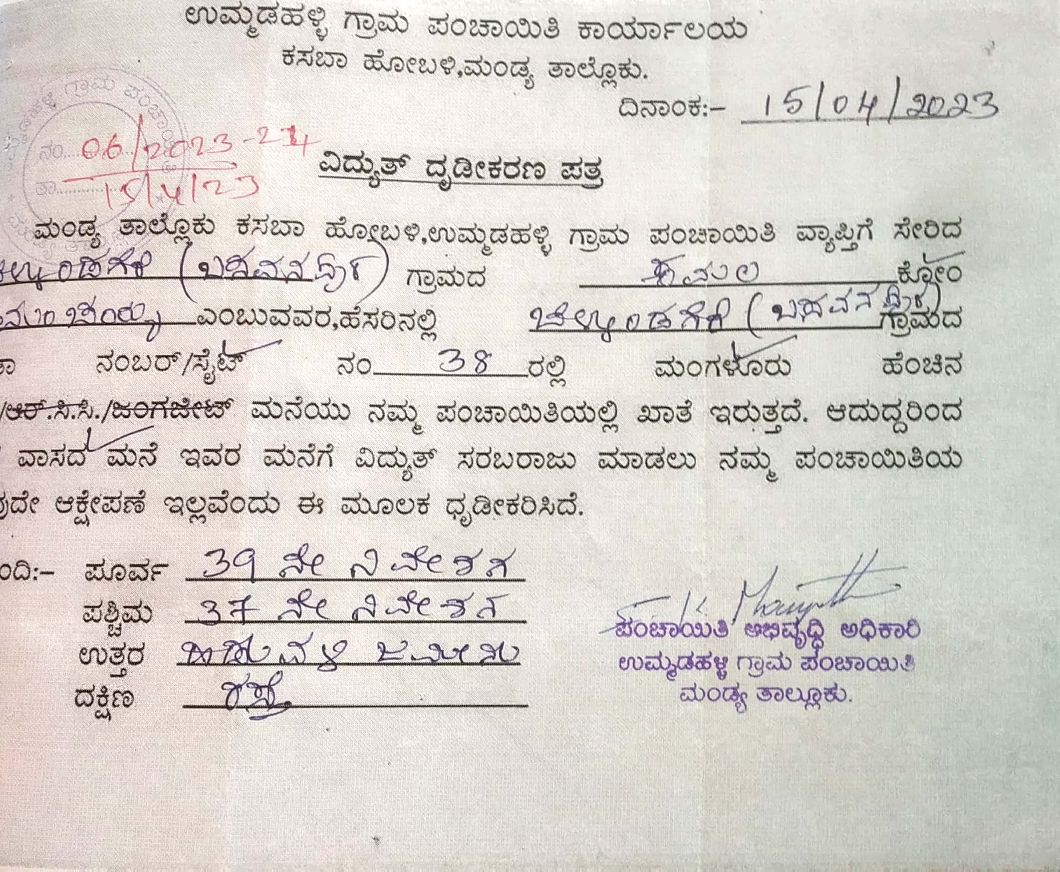 ಉಮ್ಮಡಹಳ್ಳಿ ಗ್ರಾಮ ಪಂಚಾಯಿತಿ ಕಾರ್ಯಾಲಯ
ಕಸಬಾ ಹೋಬಳಿ,ಮಂಡ್ಯ ತಾಲ್ಲೊಕು.
ದಿನಾಂಕ:- 15/04/2023
ನಂ. 06/2023-24
ತಾ. 15/4/23
ವಿದ್ಯುತ್ ದೃಡೀಕರಣ ಪತ್ರ
ಮಂಡ್ಯ ತಾಲ್ಲೊಕು ಕಸಬಾ ಹೋಬಳಿ,ಉಮ್ಮಡಹಳ್ಳಿ ಗ್ರಾಮ ಪಂಚಾಯಿತಿ ವ್ಯಾಪ್ತಿಗೆ ಸೇರಿದ
ಗ್ರಾಮದ ಕೋಂ
ಎಂಬುವವರ,ಹೆಸರಿನಲ್ಲಿ ಗ್ರಾಮದ
ನಂಬರ್/ಸೈಟ್ ನಂ 38 ರಲ್ಲಿ ಮಂಗಳೂರು ಹೆಂಚಿನ
/ಆರ್.ಸಿ.ಸಿ./ಜಂಗಜೀಟ್ ಮನೆಯು ನಮ್ಮ ಪಂಚಾಯಿತಿಯಲ್ಲಿ ಖಾತೆ ಇರುತ್ತದೆ. ಆದುದ್ದರಿಂದ
ವಾಸದ ಮನೆ ಇವರ ಮನೆಗೆ ವಿದ್ಯುತ್ ಸರಬರಾಜು ಮಾಡಲು ನಮ್ಮ ಪಂಚಾಯಿತಿಯ
ಆಕ್ಷೇಪಣೆ ಇಲ್ಲವೆಂದು ಈ ಮೂಲಕ ಧೃಡೀಕರಿಸಿದೆ.
ಪೂರ್ವ 39 ನೇ ನಿವೇಶನ
ಪಶ್ಚಿಮ 37 ನೇ ನಿವೇಶನ
ಉತ್ತರ ಜಮೀನು
ದಕ್ಷಿಣ ರಸ್ತೆ
ಪಂಚಾಯಿತಿ ಅಭಿವೃದ್ಧಿ ಅಧಿಕಾರಿ
ಉಮ್ಮಡಹಳ್ಳಿ ಗ್ರಾಮ ಪಂಚಾಯಿತಿ
ಮಂಡ್ಯ ತಾಲ್ಲೂಕು.